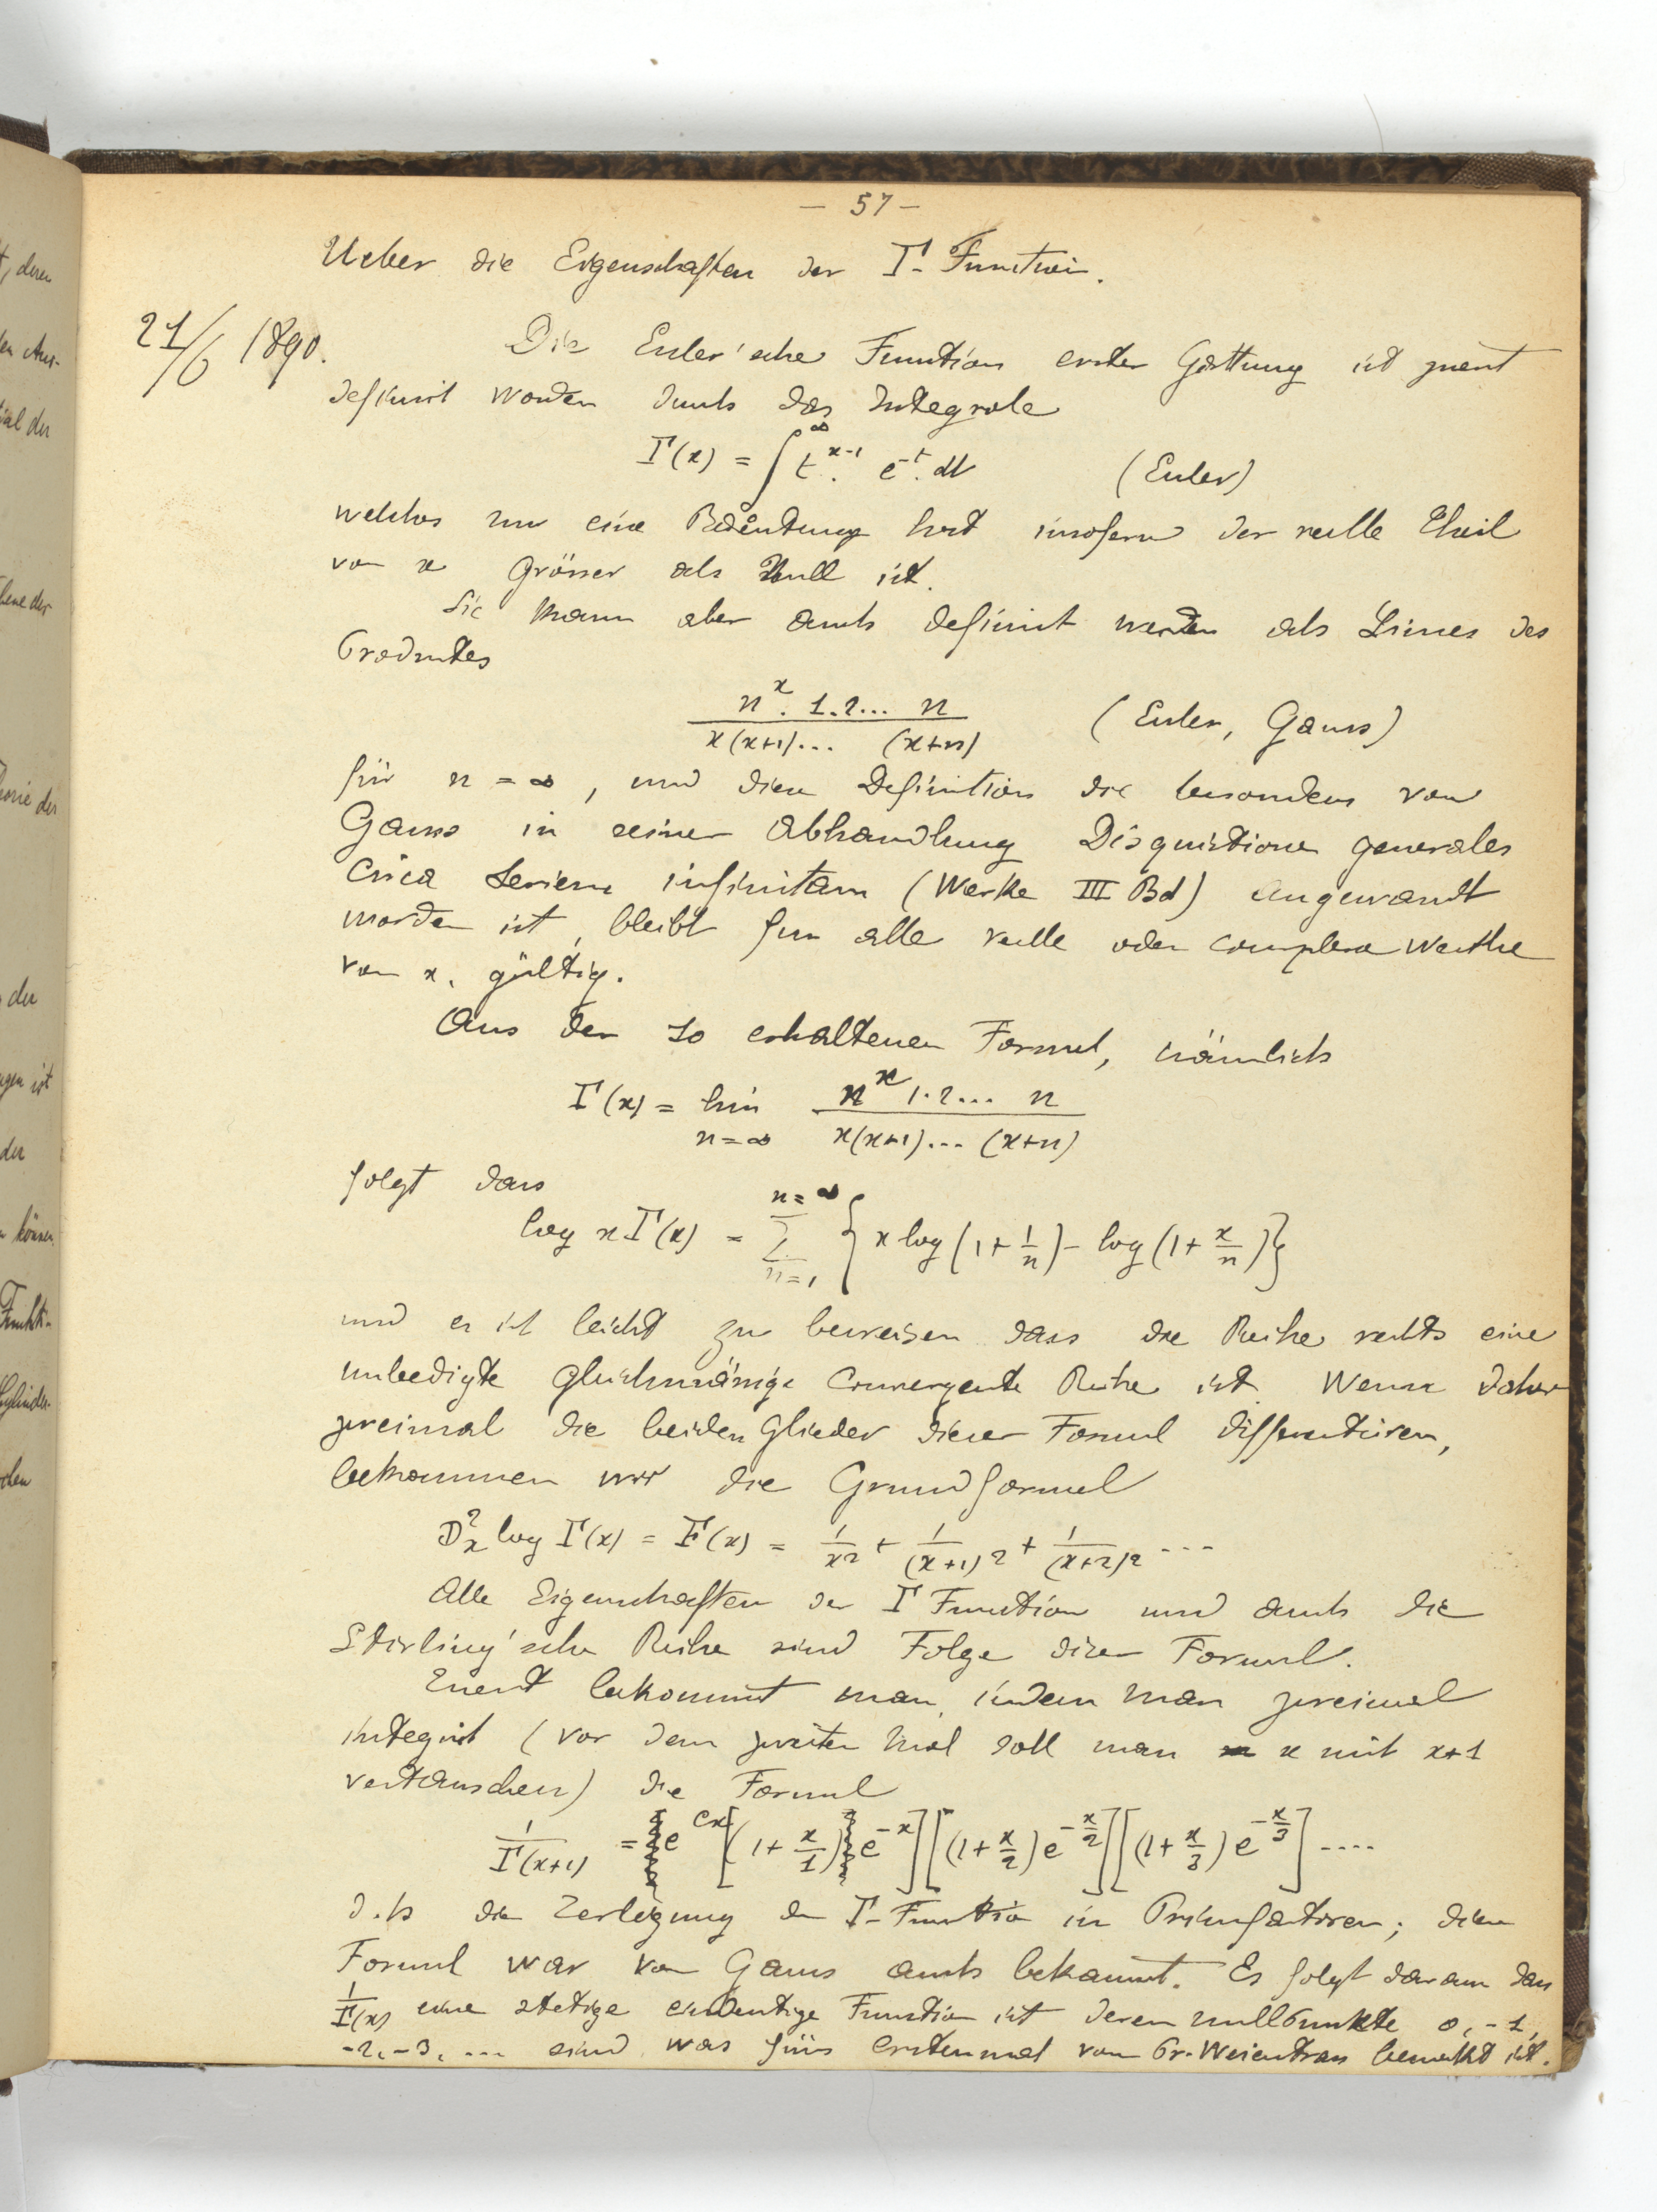 - 57 -
Ueber die Eigenschaften der Γ- Function.
21/6 1890.
Die Euler'sche Function erster Gattung ist zuerst
definirt worden durch das Integrale
Γ(x) = ∫^∞ t^{x-1}. e^{-t}. dt (Euler)
welches nur eine Bedeutung hat insofern der reelle Theil
von x Grösser als Null ist.
Sie kann aber auch definirt werden als Limes des
Productes
n^x. 1.2... n / x(x+1)... (x+n) (Euler, Gauss)
für n = ∞, und diese Definition die besonders von
Gauss in seiner Abhandlung Disquisitiones generales
circa seriem infinitam (Werke III Bd) angewandt
worden ist, bleibt für alle reelle oder complexe Werthe
von x, gültig.
Aus der so erhaltenen Formel, nämlich
Γ(x) = lim n=∞ n^x 1.2... n / x(x+1)... (x+n)
folgt dass
log xΓ(x) = Σ_{n=1}^{n=∞} {x log(1+1/n) - log(1+x/n)}
und es ist leicht zu beweisen dass die Reihe rechts eine
unbedigte gleichmässige Convergente Reihe ist. Wenn daher
zweimal die beiden Glieder dieser Formel differentiiren,
bekommen wir die Grundformel
D²_x log Γ(x) = F(x) = 1/x² + 1/(x+1)² + 1/(x+2)² ...
Alle Eigenschaften der Γ Function und auch die
Stirling'sche Reihe sind Folge dieser Formel.
Zuerst bekommt man, indem man zweimal
integrirt (vor dem zweiten Mal soll man x mit x+1
vertauschen) die Formel
1/Γ(x+1) = e^{Cx}[(1+x/1)e^{-x}][(1+x/2)e^{-x/2}][(1+x/3)e^{-x/3}]....
d.h die Zerlegung der Γ-Function in Primfactoren; diese
Formel war von Gauss auch bekannt. Es folgt daraus dass
1/Γ(x) eine stetige eindeutige Function ist deren Nullpunkte 0, -1,
-2, -3, ... sind, was fürs erstenmal von Pr. Weierstrass bemerkt ist.